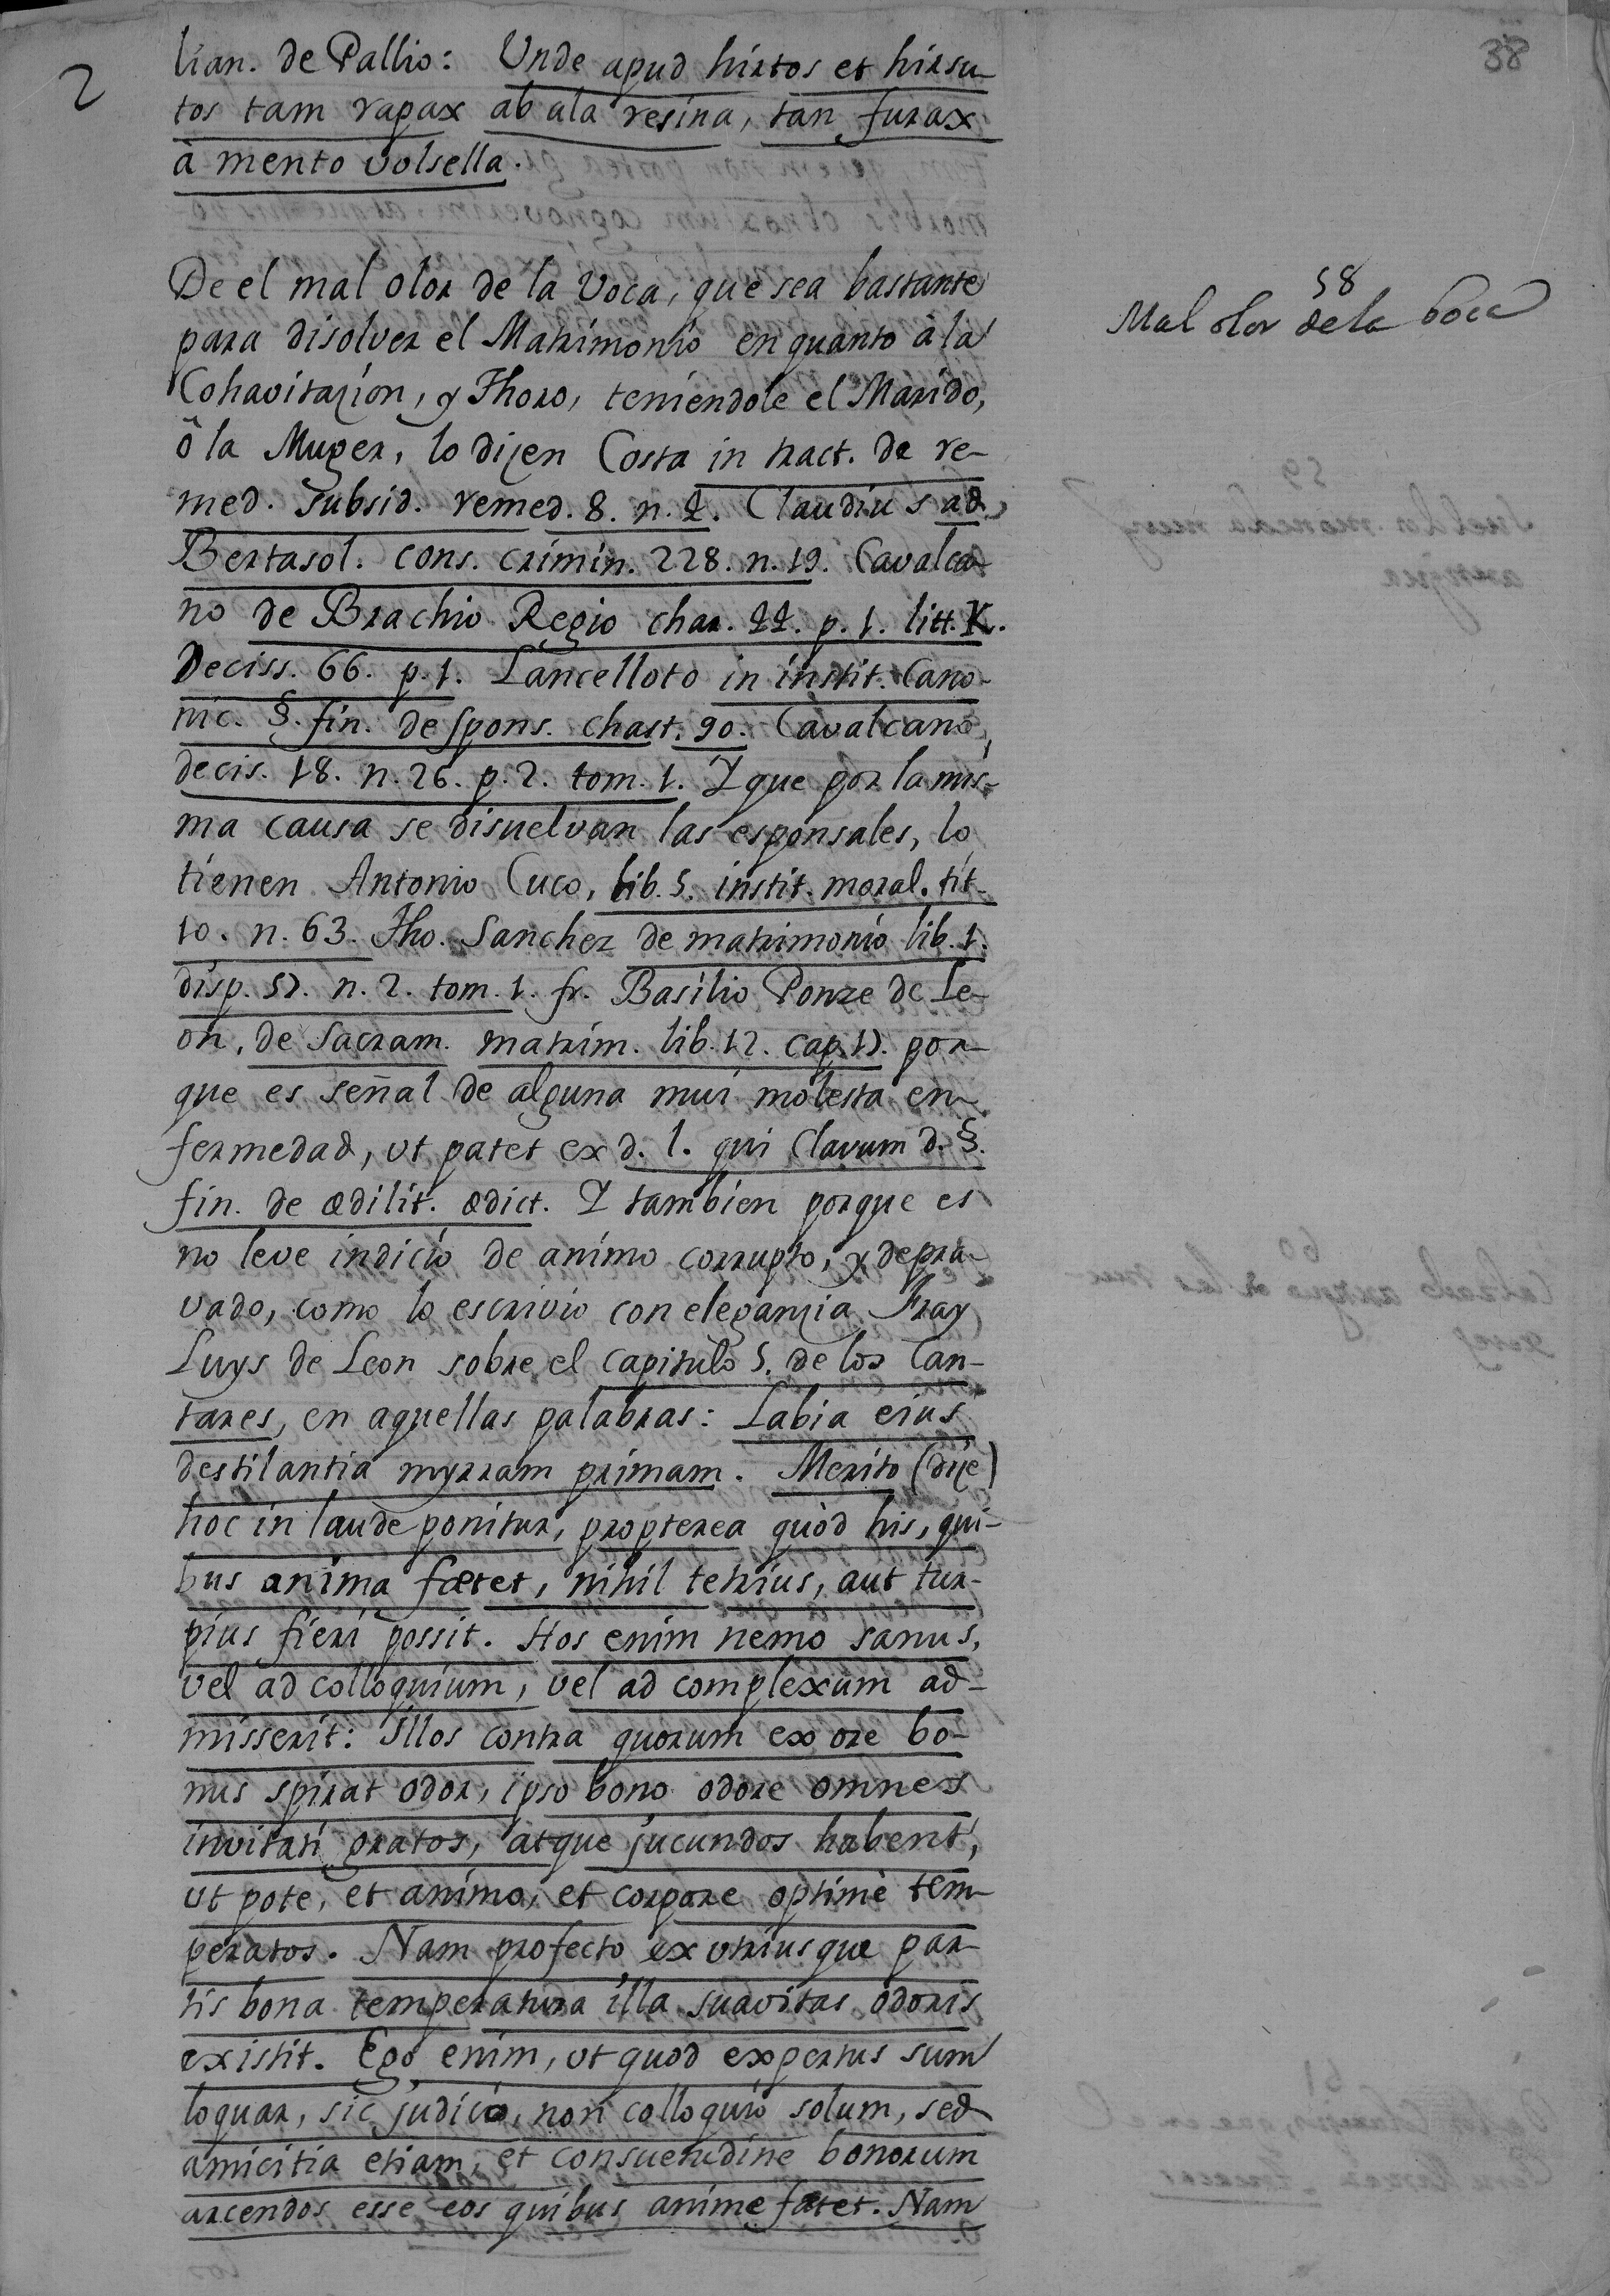 38
2
lian. de Pallio: Unde apud hirtos et hirsu-
tos tam rapax ab ala resina, tan furax
à mento volsella.
De el mal olor de la Voca, que sea bastante
para disolver el Matrimonio en quanto à la
Cohavitazion, y Thoro, teniendole el Marido,
ô la Muger, lo dizen Costa in tract. de re-
med. subsid. remed. 8. n. 2. Claudius ad
Bertasol. cons. crimin. 228. n. 19. Cavalca-
no de Brachio Regio char. 22. p. 1. litt. K.
Deciss. 66. p. 1. Lancelloto in instit. Cano-
nic. §. fin. de spons. chast. 90. Cavalcano,
decis. 18. n. 26. p. 2. tom. 1. Y que por la mis-
ma causa se disuelvan las esponsales, lo
tienen Antonio Cuco, lib. 5. instit. moral. tit-
10. n. 63. Tho. Sanchez de matrimonio lib. 1.
disp. 57. n. 2. tom. 1. fr. Basilio Ponze de Le-
on, de Sacram. matrim. lib. 12. cap. 17. por-
que es señal de alguna mui molesta en-
fermedad, ut patet ex d. l. qui Clavum d. §.
fin. de ædilit. ædict. Y tambien porque es
no leve indicio de animo corrupto, y depra-
vado, como lo escrivio con eleganzia Fray
Luys de Leon sobre el capitulo 5. de los Can-
tares, en aquellas palabras: Labia eius
destilantia myrram primam. Merito (dize)
hoc in laude ponitur, propterea quòd his, qui-
bus anima fœtet, nihil tetrius, aut tur-
pius fieri possit. Hos enim nemo sanus,
vel ad colloquium, vel ad complexum ad-
misserit: illos contra quorum ex ore bo-
nus spirat odor, ipso bono odore omnes
invitati gratos, atque jucundos habent,
ut pote, et animo, et corpore optimè tem-
peratos. Nam profecto ex utriusque par-
tis bona temperatura illa suavitas odoris
existit. Ego enim, ut quod expertus sum
loquar, sic judico, non colloquio solum, sed
amicitia etiam, et consuetudine bonorum
arcendos esse eos quibus anime fœtet. Nam
58
Mal olor de la boca